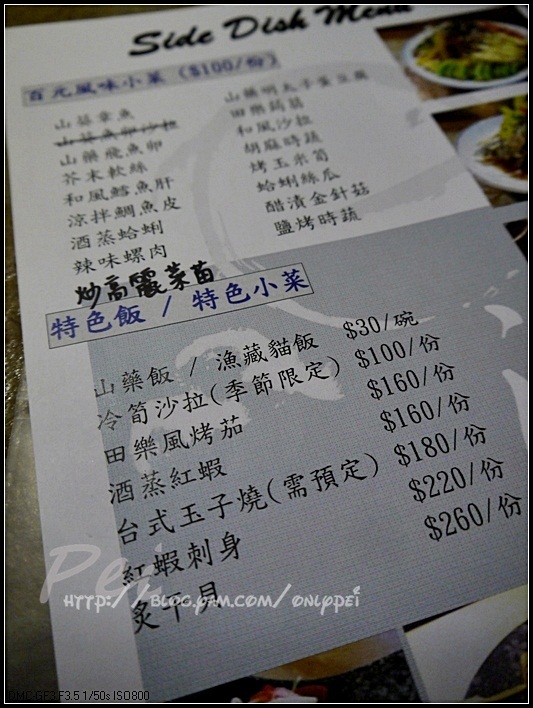 Side Dish Menu
百元風味小菜 ($100/份)
山葵章魚
山葵魚卵沙拉
山藥飛魚卵
芥末軟絲
和風鱈魚肝
涼拌鯛魚皮
酒蒸蛤蜊
辣味螺肉
炒高麗菜苗
山藥明太子蛋豆腐
田樂蒟蒻
和風沙拉
胡麻時蔬
烤玉米筍
蛤蜊絲瓜
醋漬金針菇
鹽烤時蔬
特色飯 / 特色小菜
山藥飯 / 漁藏貓飯 $30/碗
冷筍沙拉(季節限定) $100/份
田樂風烤茄 $160/份
酒蒸紅蝦 $160/份
台式玉子燒(需預定) $180/份
紅蝦刺身 $220/份
炙干貝 $260/份
Pei
HTTP://BLOG.YAM.COM/ONLYPEI
DMC-GF3 F3.5 1/50s ISO800